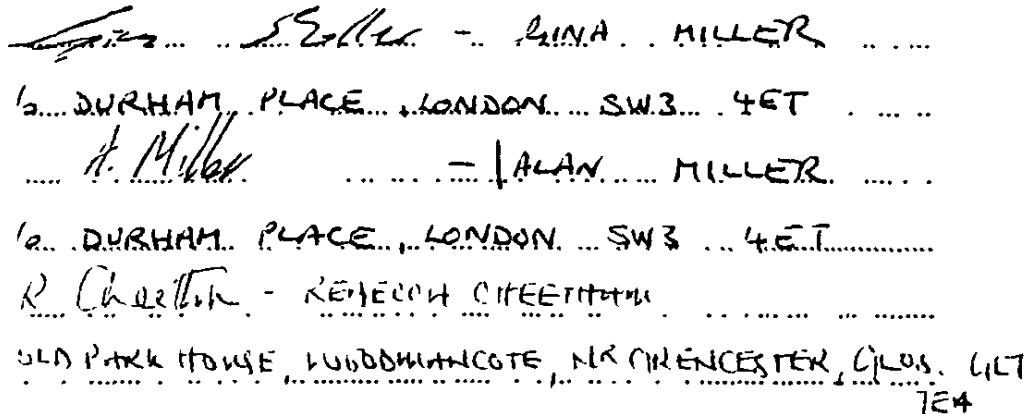 Gina Miller - GINA MILLER
10 DURHAM PLACE, LONDON SW3 4ET
A. Miller - ALAN MILLER
10 DURHAM PLACE, LONDON SW3 4ET
R Cheetham - REBECCA CHEETHAM
OLD PARK HOUSE, WOODMANCOTE, NR CIRENCESTER, GLOS. GL7
7EH